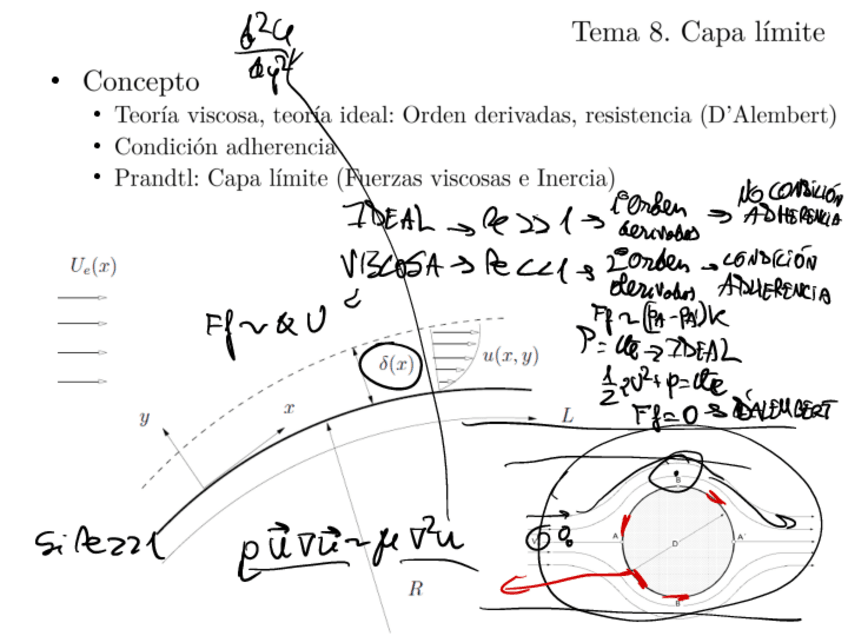 Tema 8. Capa límite
• Concepto
• Teoría viscosa, teoría ideal: Orden derivadas, resistencia (D'Alembert)
• Condición adherencia
• Prandtl: Capa límite (Fuerzas viscosas e Inercia)
IDEAL → Re >> 1 → 1º Orden derivadas → NO CONDICIÓN ADHERENCIA
VISCOSA → Re << 1 → 2º Orden derivadas → CONDICIÓN ADHERENCIA
U_e(x)
Ff ~ (P_A - P_A')
P = cte → IDEAL
½ρU² + p = cte
Ff = 0 → D'ALEMBERT
δ(x)
u(x, y)
y
x
L
Si Re >> 1
ρ u⃗ ∇u⃗ ~ μ ∇²u
R
B
A
D
A'
B'